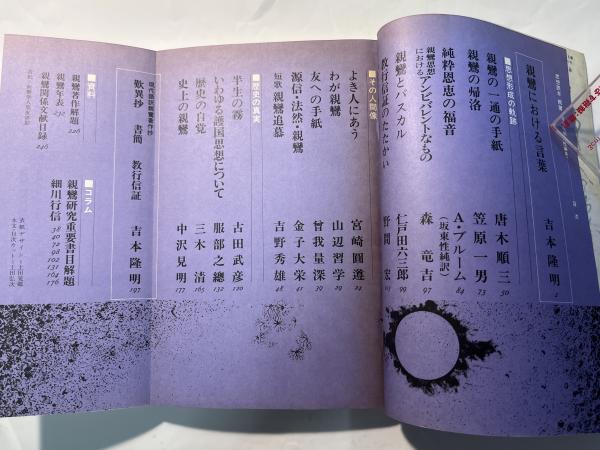 親鸞における言葉 吉本隆明
■思想形成の軌跡
親鸞の一通の手紙 唐木順三 50
親鸞の帰洛 笠原一男 73
純粋恩恵の福音 A・ブルーム (坂東性純訳) 84
親鸞思想におけるアンビバレントなもの 森竜吉 97
親鸞とパスカル 仁戸田六三郎 99
教行信証のたたかい 野間宏
■その人間像
よき人にあう 宮崎圓遵
わが親鸞 山辺習学 29
友への手紙 曾我量深 39
源信・法然・親鸞 金子大栄 41
短歌 親鸞追慕 吉野秀雄 48
■歴史の真実
半生の霧 古田武彦 120
いわゆる護国思想について 服部之總 132
歴史の自覚 三木清 165
史上の親鸞 中沢見明 177
現代語訳親鸞著作抄
歎異抄 書簡 教行信証 吉本隆明 197
■資料
親鸞著作解題 226
親鸞年表 232
親鸞関係文献目録 246
■コラム
親鸞研究重要書目解題
細川行信 38 40 72 98 102 131 164 176